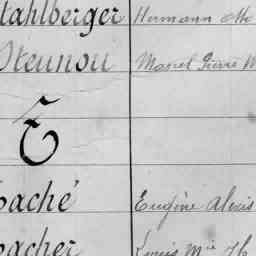 tahlberger Hermann Otto
Steunou Marcel Pierre M
T
aché Eugène Alexis
acher Louis Mie H